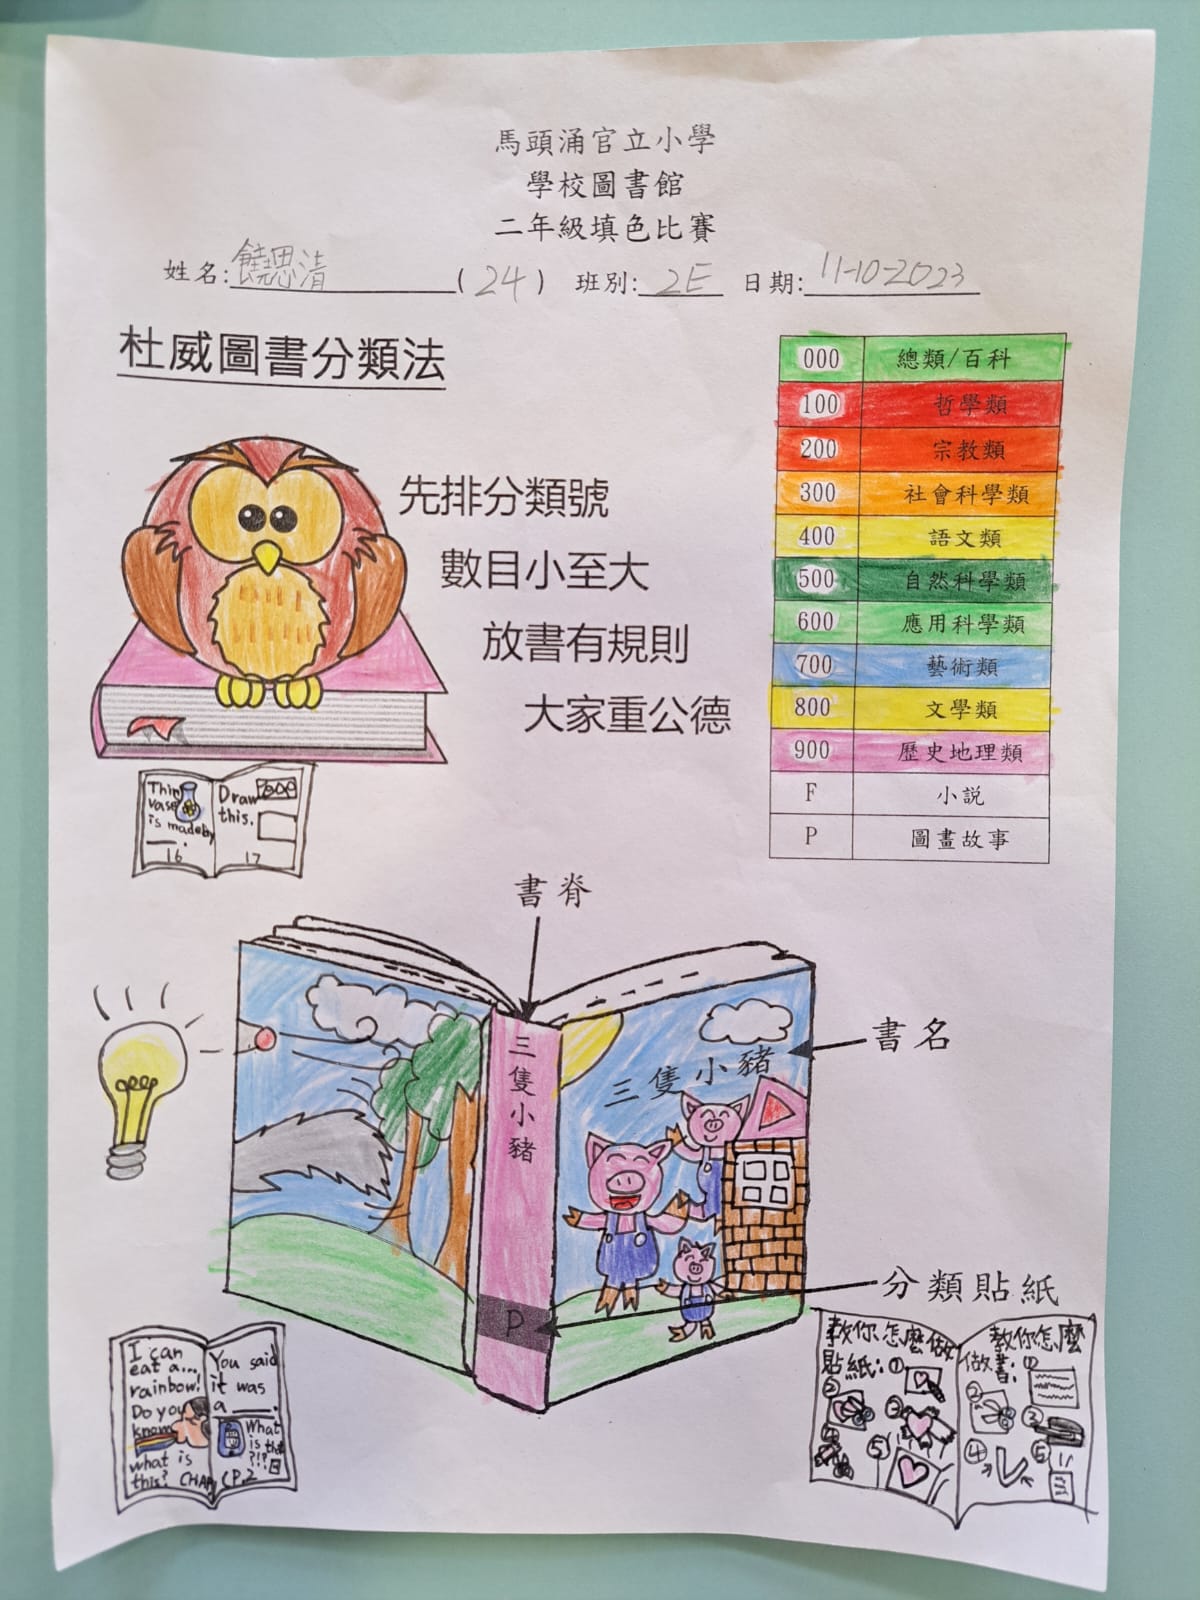 馬頭涌官立小學
學校圖書館
二年級填色比賽
姓名:饒思清(24) 班別:2E 日期:11-10-2023
杜威圖書分類法
先排分類號
數目小至大
放書有規則
大家重公德
000 總類/百科
100 哲學類
200 宗教類
300 社會科學類
400 語文類
500 自然科學類
600 應用科學類
700 藝術類
800 文學類
900 歷史地理類
F 小説
P 圖畫故事
This
vase
is made by
16
Draw
this.
17
書脊
書名
三隻小豬
三隻小豬
分類貼紙
P
I can
eat a...
rainbow!
Do you
know
what is
this?
You said
it was
a
What
is that
?!?
P.2
教你怎麼做
貼紙:①
②
③
⑤
教你怎麼
做書:①
②
③
④
⑤